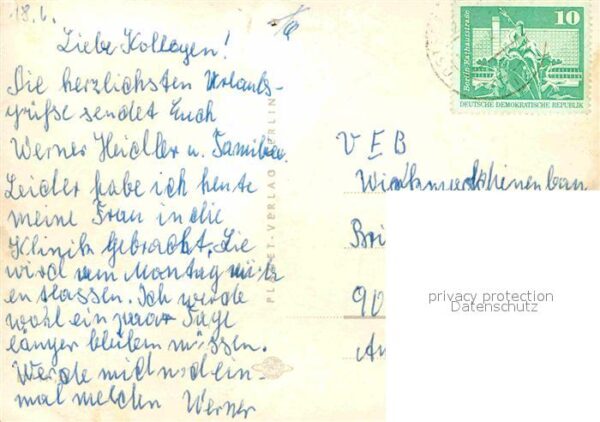 18.6.
Liebe Kollegen!
Die herzlichsten Urlaubs-
grüße sendet Euch
Werner Heidler u. Familie.
Leider habe ich heute
meine Frau in die
Klinik gebracht. Sie
wird vom Montag
entlassen. Ich werde
wohl ein paar Tage
länger bleiben müssen.
Werde mich noch ein-
mal melden Werner
PLANET-VERLAG BERLIN
10
Berlin, Rathausstraße
DEUTSCHE DEMOKRATISCHE REPUBLIK
VEB
Wirkmaschinenbau
Bri
90
privacy protection
Datenschutz